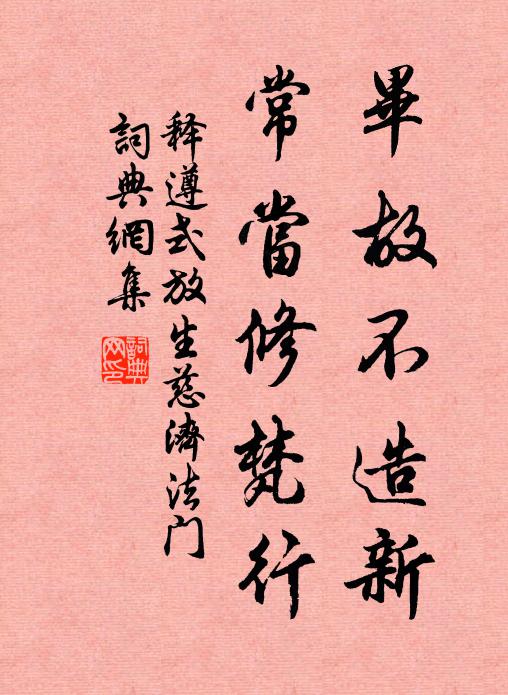 畢故不造新
常當修梵行
释遵式放生慈濟法门
詞典網集
詞典
网印